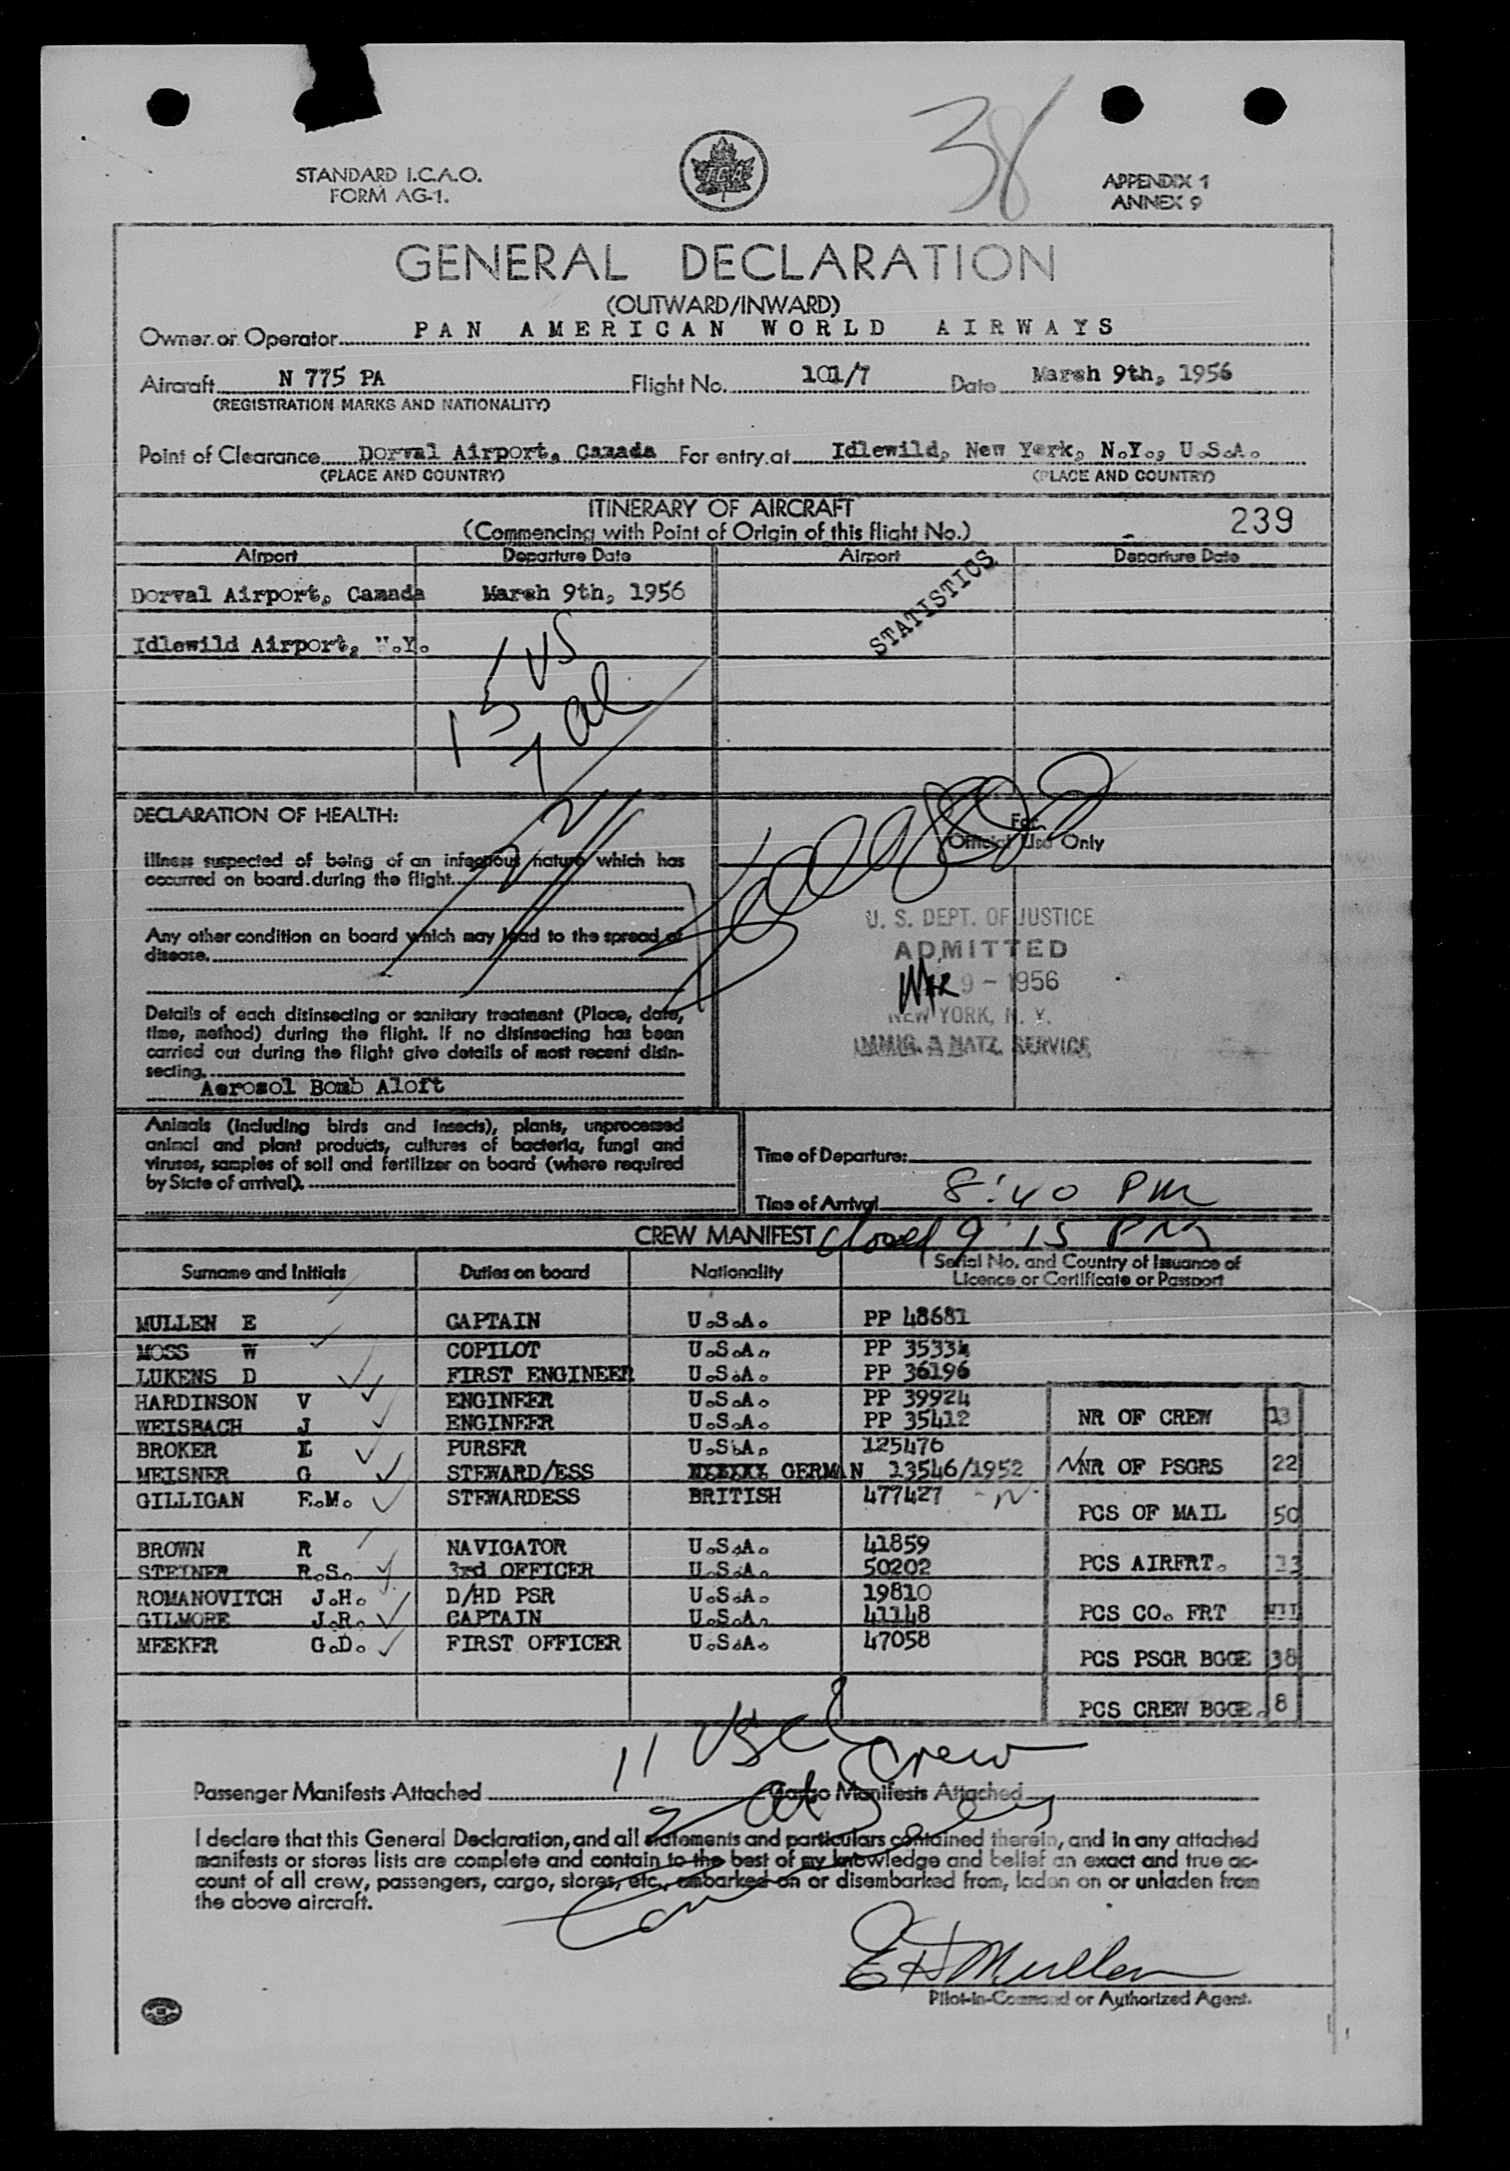 38
STANDARD I.C.A.O.
FORM AG-1.
TCA
APPENDIX 1
ANNEX 9
GENERAL DECLARATION
(OUTWARD/INWARD)
Owner or Operator PAN AMERICAN WORLD AIRWAYS
Aircraft N 775 PA Flight No. 101/7 Date March 9th, 1956
(REGISTRATION MARKS AND NATIONALITY)
Point of Clearance Dorval Airport, Canada For entry at Idlewild, New York, N.Y., U.S.A.
(PLACE AND COUNTRY) (PLACE AND COUNTRY)
ITINERARY OF AIRCRAFT
(Commencing with Point of Origin of this flight No.) 239
Airport Departure Date Airport Departure Date
Dorval Airport, Canada March 9th, 1956
STATISTICS
Idlewild Airport, N.Y.
15 US
7 al
22
DECLARATION OF HEALTH:
For
Official Use Only
Illness suspected of being of an infectious nature which has
occurred on board during the flight
Any other condition on board which may lead to the spread of
disease.
U. S. DEPT. OF JUSTICE
ADMITTED
MAR 9 - 1956
NEW YORK, N. Y.
IMMIG. & NATZ. SERVICE
Details of each disinsecting or sanitary treatment (Place, date,
time, method) during the flight. If no disinsecting has been
carried out during the flight give details of most recent disin-
secting.
Aerosol Bomb Aloft
Animals (including birds and insects), plants, unprocessed
animal and plant products, cultures of bacteria, fungi and
viruses, samples of soil and fertilizer on board (where required
by State of arrival).
Time of Departure:
Time of Arrival 8:40 PM
CREW MANIFEST closed 9 15 PM
Surname and Initials Duties on board Nationality Serial No. and Country of Issuance of
Licence or Certificate or Passport
MULLEN E CAPTAIN U.S.A. PP 48681
MOSS W COPILOT U.S.A. PP 35334
LUKENS D FIRST ENGINEER U.S.A. PP 36196
HARDINSON V ENGINEER U.S.A. PP 39924
WEISBACH J ENGINEER U.S.A. PP 35412
NR OF CREW 13
BROKER E PURSER U.S.A. 125476
MEISNER G STEWARD/ESS GERMAN 13546/1952
NR OF PSGRS 22
GILLIGAN E.M. STEWARDESS BRITISH 477427
PCS OF MAIL 50
BROWN R NAVIGATOR U.S.A. 41859
STEINER R.S. 3rd OFFICER U.S.A. 50202
PCS AIRFRT. 13
ROMANOVITCH J.H. D/HD PSR U.S.A. 19810
GILMORE J.R. CAPTAIN U.S.A. 41148
PCS CO. FRT
MEEKER G.D. FIRST OFFICER U.S.A. 47058
PCS PSGR BGGE 38
PCS CREW BGGE. 8
11 USC Crew
2 al Crew
Passenger Manifests Attached Cargo Manifests Attached
I declare that this General Declaration, and all statements and particulars contained therein, and in any attached
manifests or stores lists are complete and contain to the best of my knowledge and belief an exact and true ac-
count of all crew, passengers, cargo, stores, etc., embarked on or disembarked from, laden on or unladen from
the above aircraft.
E H Mullen
Pilot-in-Command or Authorized Agent.